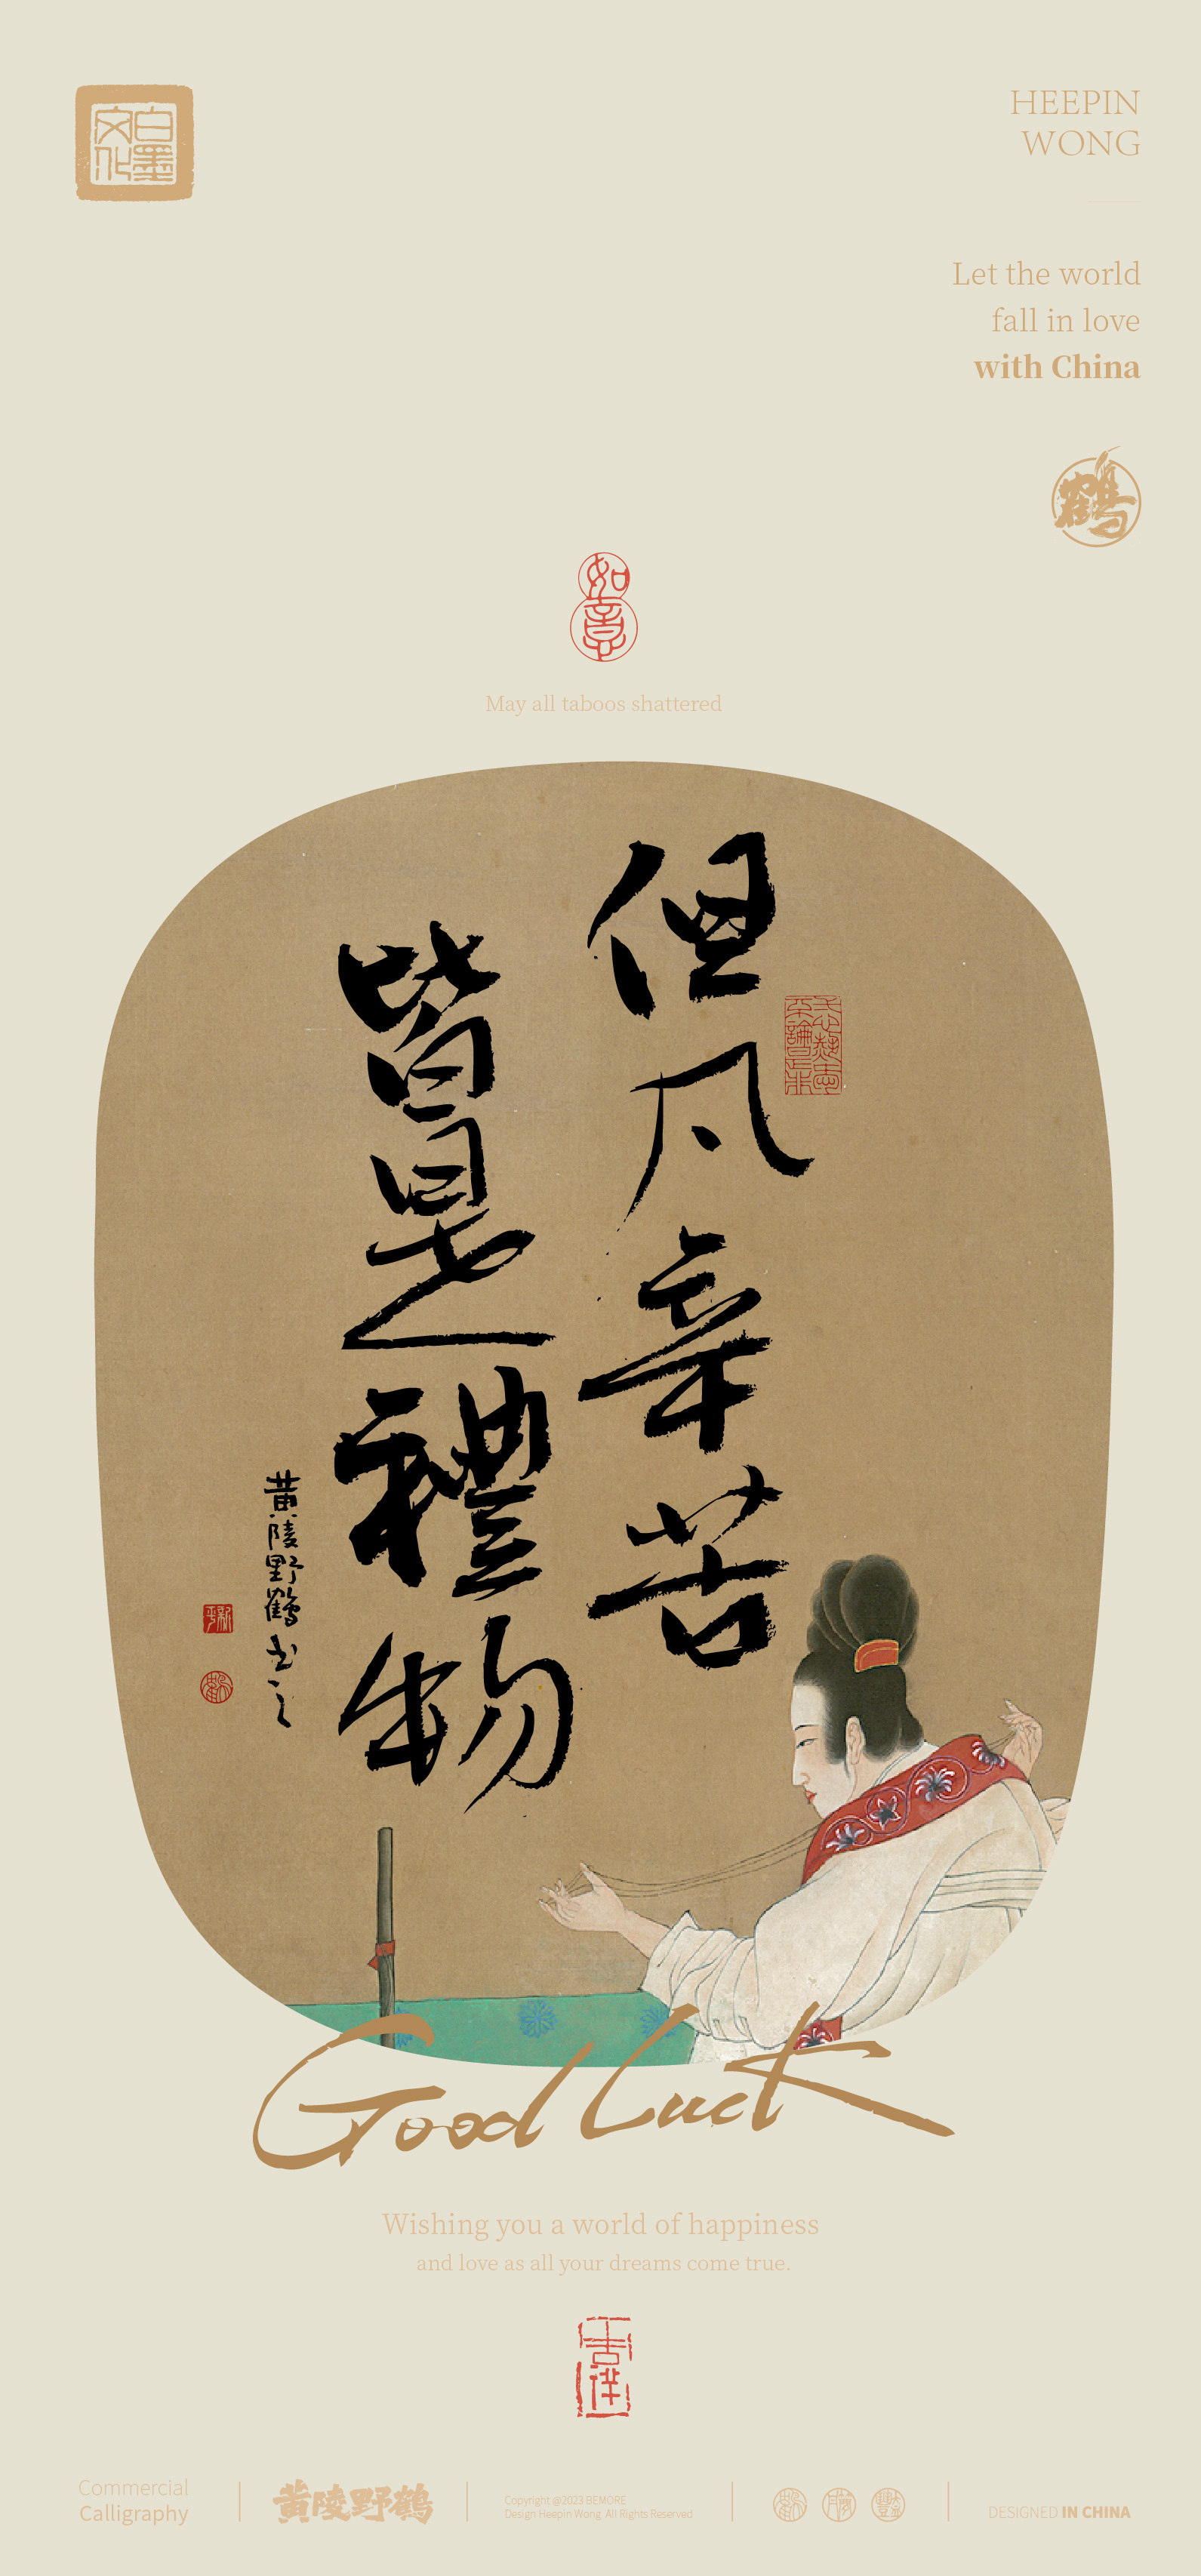 白墨
文化
HEEPIN
WONG
Let the world
fall in love
with China
鶴
如意
May all taboos shattered
但凡辛苦
皆是禮物
黄陵野鶴书之
Good Luck
Wishing you a world of happiness
and love as all your dreams come true.
吉祥
Commercial
Calligraphy
黄陵野鶴
Copyright @2023 BEMORE
Design Heepin Wong All Rights Reserved
DESIGNED IN CHINA